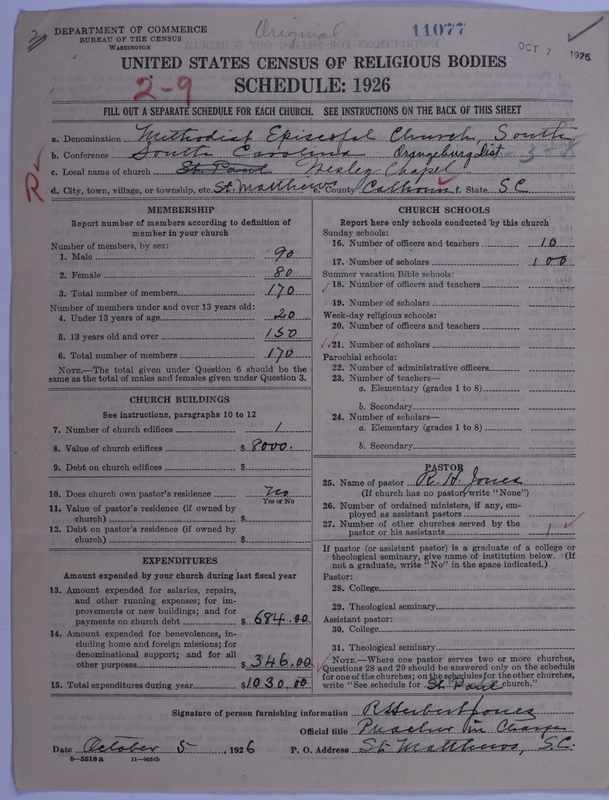 DEPARTMENT OF COMMERCE
BUREAU OF THE CENSUS
WASHINGTON
Original
11077
OCT 7 1926
UNITED STATES CENSUS OF RELIGIOUS BODIES
SCHEDULE: 1926
2-9
FILL OUT A SEPARATE SCHEDULE FOR EACH CHURCH. SEE INSTRUCTIONS ON THE BACK OF THIS SHEET
a. Denomination Methodist Episcopal Church, South
b. Conference South Carolina Orangeburg Dist. 3-8
c. Local name of church St. Paul Wesley Chapel
R
d. City, town, village, or township, etc. St. Matthews County Calhoun f. State S.C.
MEMBERSHIP
Report number of members according to definition of
member in your church
Number of members, by sex:
1. Male 90
2. Female 80
3. Total number of members 170
Number of members under and over 13 years old:
4. Under 13 years of age 20
5. 13 years old and over 150
6. Total number of members 170
NOTE.—The total given under Question 6 should be the
same as the total of males and females given under Question 3.
CHURCH BUILDINGS
See instructions, paragraphs 10 to 12
7. Number of church edifices 1
8. Value of church edifices $ 8000.
9. Debt on church edifices $
10. Does church own pastor's residence No
Yes or No
11. Value of pastor's residence (if owned by
church) $
12. Debt on pastor's residence (if owned by
church) $
EXPENDITURES
Amount expended by your church during last fiscal year
13. Amount expended for salaries, repairs,
and other running expenses; for im-
provements or new buildings; and for
payments on church debt $ 684.00
14. Amount expended for benevolences, in-
cluding home and foreign missions; for
denominational support; and for all
other purposes $ 346.00
15. Total expenditures during year $ 1030.00
CHURCH SCHOOLS
Report here only schools conducted by this church
Sunday schools:
16. Number of officers and teachers 10
17. Number of scholars 100
Summer vacation Bible schools:
18. Number of officers and teachers
19. Number of scholars
Week-day religious schools:
20. Number of officers and teachers
21. Number of scholars
Parochial schools:
22. Number of administrative officers
23. Number of teachers—
a. Elementary (grades 1 to 8)
b. Secondary
24. Number of scholars—
a. Elementary (grades 1 to 8)
b. Secondary
PASTOR
25. Name of pastor R. H. Jones
(If church has no pastor, write "None")
26. Number of ordained ministers, if any, em-
ployed as assistant pastors
27. Number of other churches served by the
pastor or his assistants 1
If pastor (or assistant pastor) is a graduate of a college or
theological seminary, give name of institution below. (If
not a graduate, write "No" in the space indicated.)
Pastor:
28. College
29. Theological seminary
Assistant pastor:
30. College
31. Theological seminary
NOTE.—Where one pastor serves two or more churches,
Questions 28 and 29 should be answered only on the schedule
for one of the churches; on the schedules for the other churches,
write "See schedule for St. Paul church."
Signature of person furnishing information R Herbert Jones
Official title Preacher in Charge
Date October 5, 1926 P. O. Address St. Matthews, S.C.
8-5518a 11-9054b